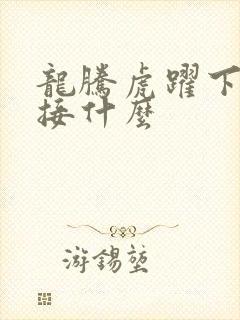 龍騰虎躍下
接什麼
游錫堃